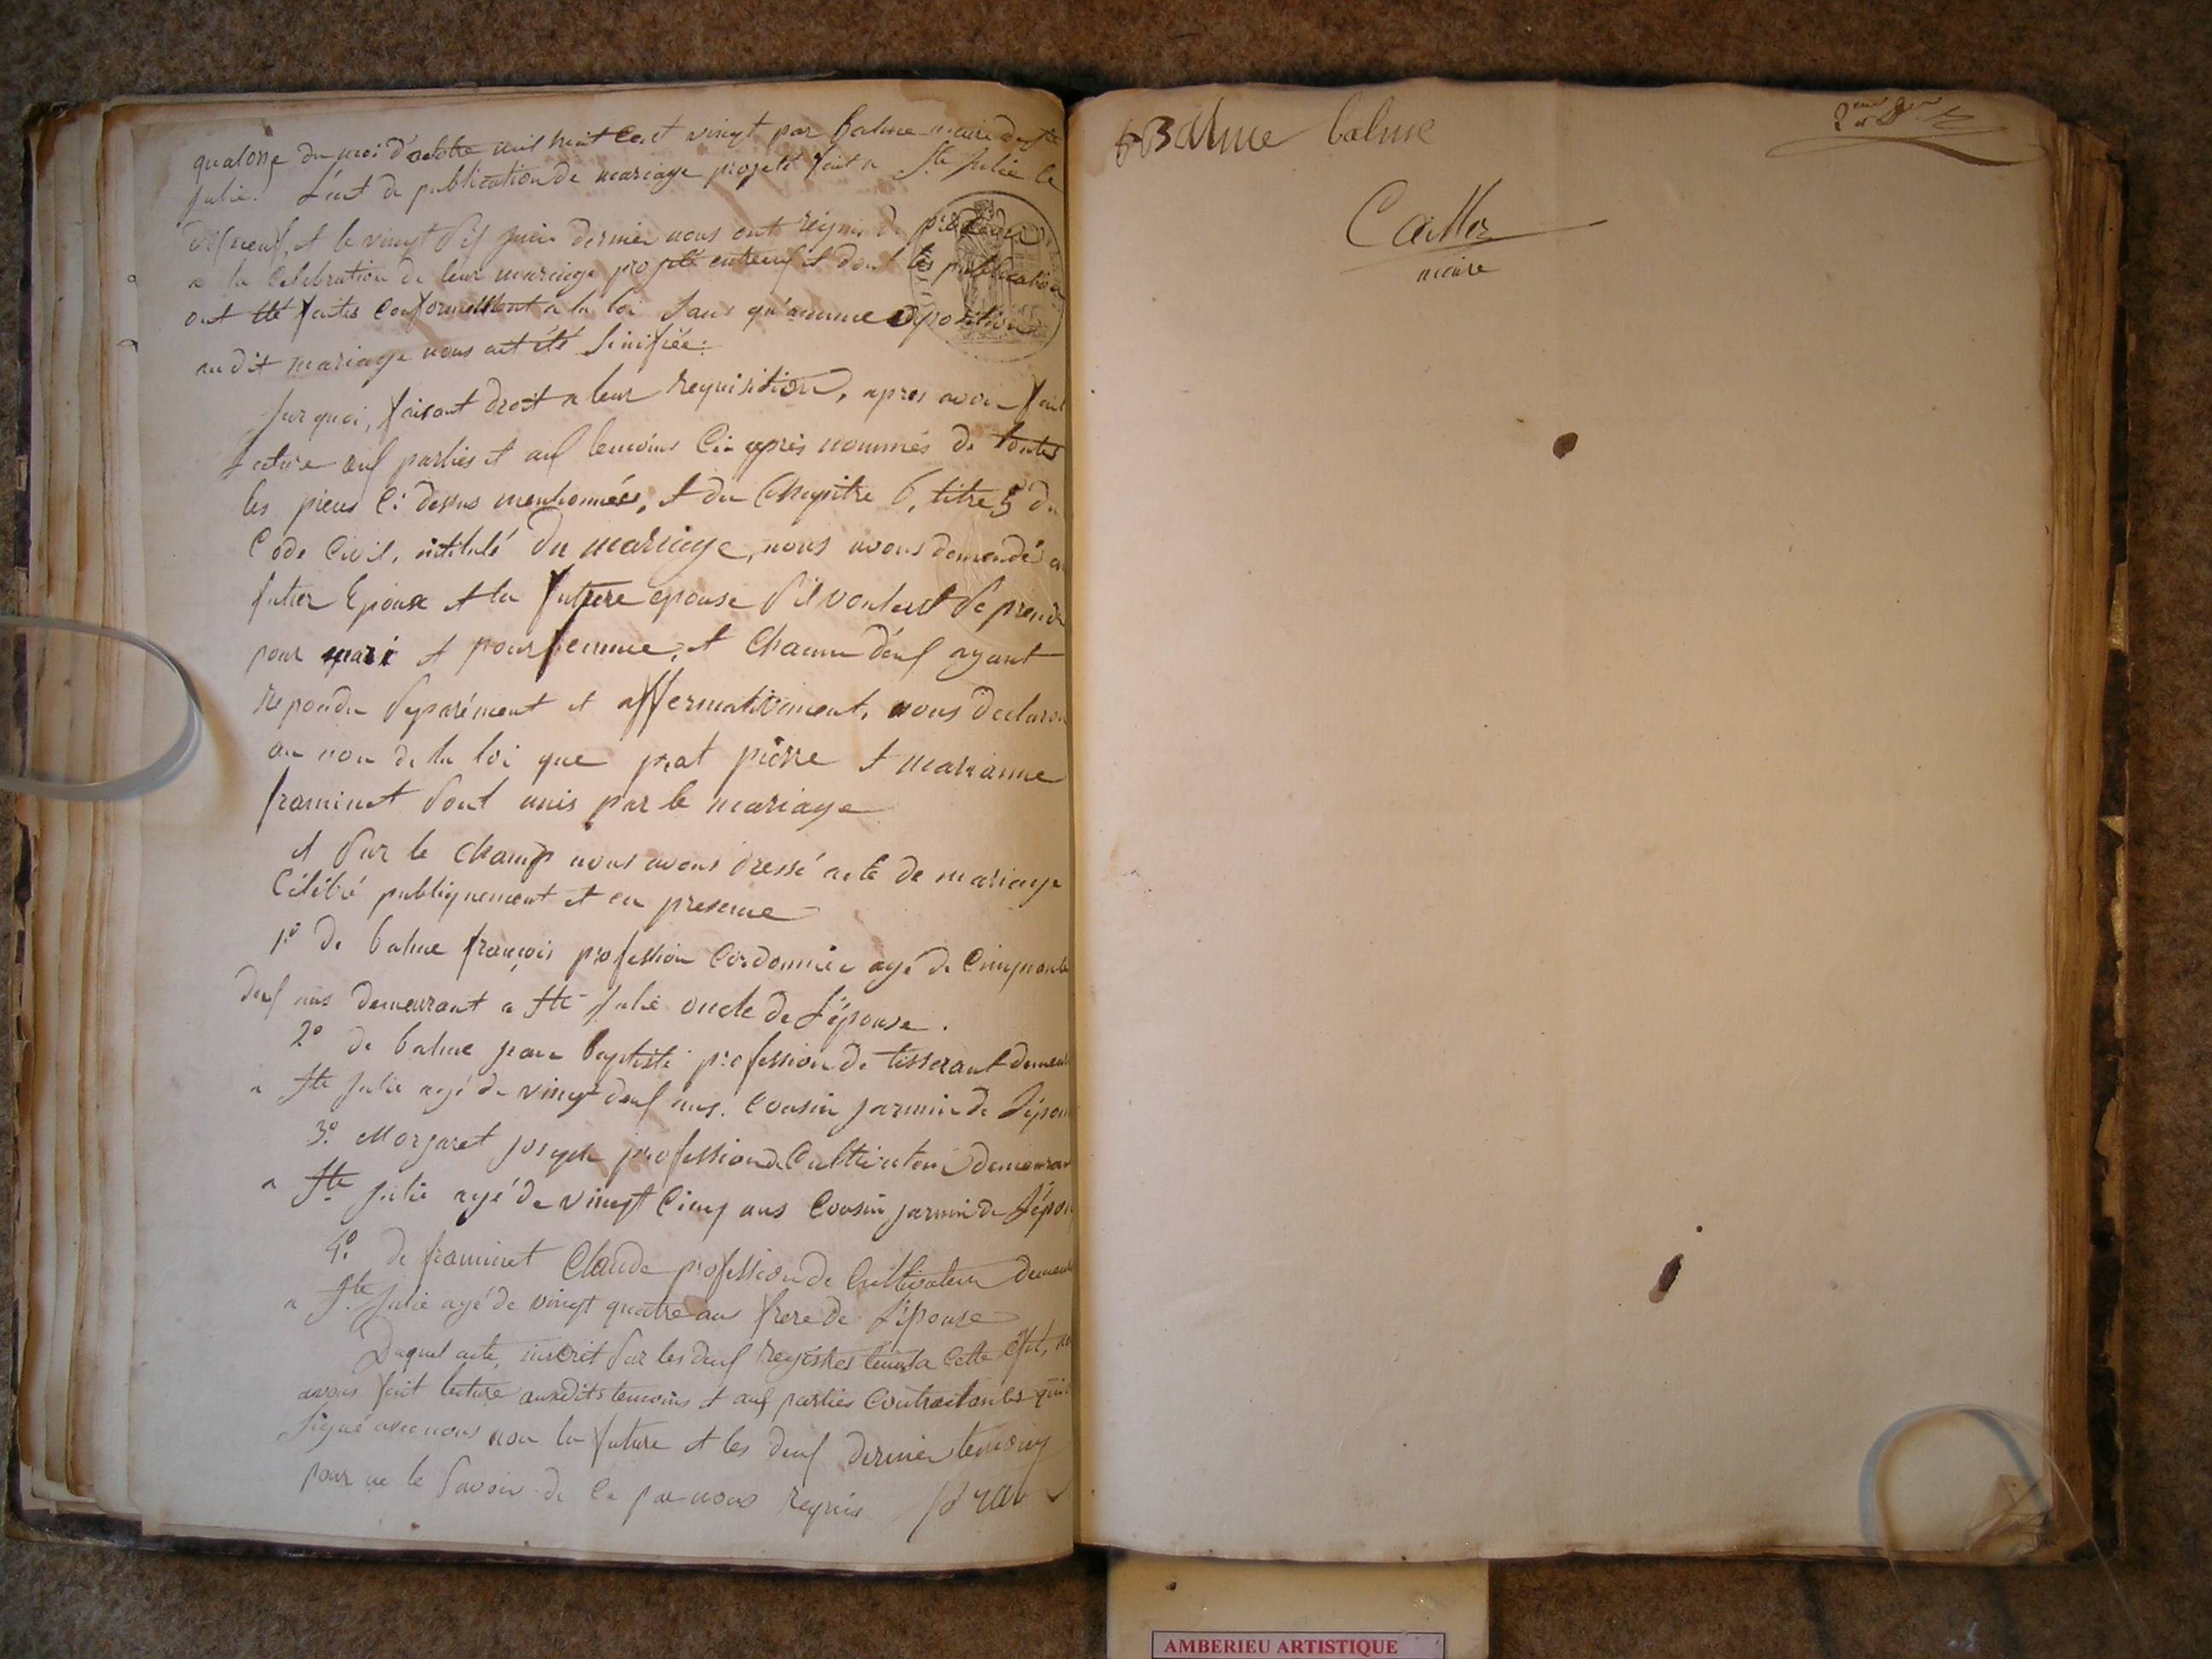 quatorze du moi d'octobre mil huit cent vingt par balme maire de Ste
Julie. L'act de publication de mariage projeté fait a Ste Julie le
dix neuf, et le vingt six juin dernier nous ont requis de procéder
a la celebration de leur mariage projeté entreux et dont les publication
ont été faites conformément a la loi sans qu'aucune oposition
au dit mariage nous ait été sinifiée:
sur quoi, faisant droit a leur requisition, apres avoir fait
lecture aux parties et aux temoins ci-après nommés de toutes
les pieces ci dessus mentionnées, et du chapitre 6, titre 5 du
Code Civil, intitulé du mariage, nous avons demandé au
futur Epoux et la future epouse s'il veulent se prendre
pour mari et pour femme, et chacun d'eux ayant
repondu séparément et affermativement, nous declaron
au nom de la loi que prat pierre et marianne
framinet sont unis par le mariage
et sur le champ nous avons dressé acte de mariage
célébré publiquement et en presence
1.° de balme françois profession cordonnier agé de cinquante
deux ans demeurant a Ste Julie oncle de L'épouse.
2° de balme jean baptiste profession de tisserant demeur
a Ste Julie agé de vingt deux ans. cousin jarmin de L'épou
3.° Morgaret joseph profession de Cultivateur demeuran
a Ste Julie agé de vingt cinq ans cousin jarmin de L'épou
4.° de framinet Claude profession de cultivateur demeur
a Ste Julie agé de vingt quatre ans frere de L'épouse
Duquel acte, inscrit sur les deux registres tenus a cette effet,
avons fait lecture auxdits temoins et aux parties contractantes qui
signé avec nous non la future et les deux dernier temoins
pour ne le savoir de ce par nous requis
Balme balme
Caillor
maire
AMBERIEU ARTISTIQUE